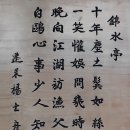 錦水亭
十年塵土鬢如絲
一笑懽娛得幾時
晚向江湖訪漁父
白鷗心事少人知
蓬萊楊士彦